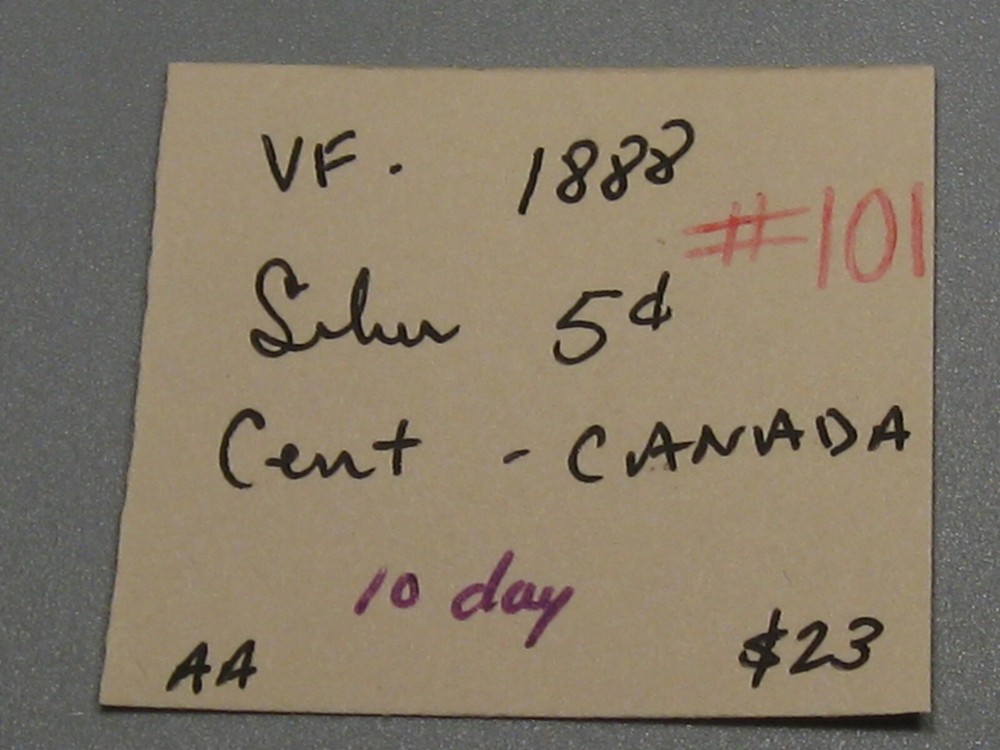 VF. 1888
#101
Silver 5¢
Cent - CANADA
10 day
AA $23